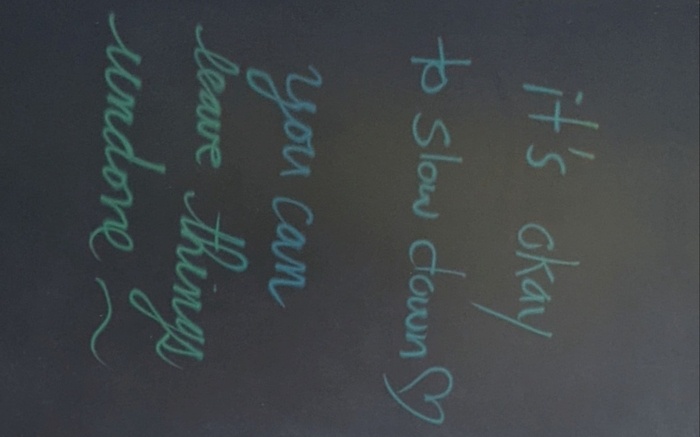 it's okay
to slow down ♡
you can
leave things
undone ~